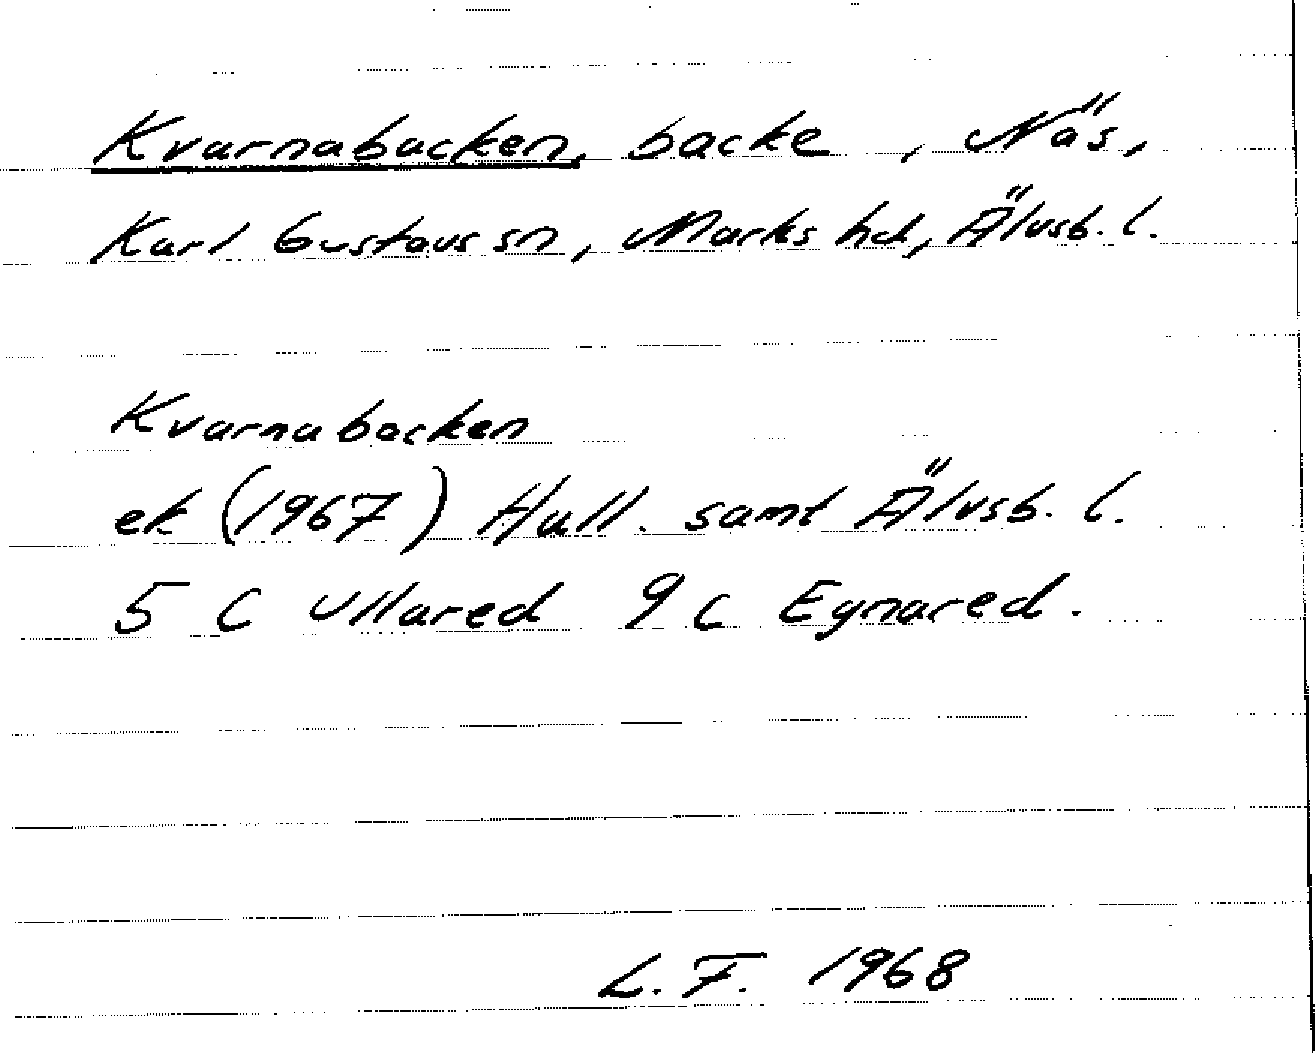 Kvarnabacken, backe , Näs,
Karl Gustavs sn, Marks hd, Älvsb. l.
Kvarnabacken
ek (1967) Hall. samt Älvsb. l.
5 C Ullared 9 c Egnared.
L. F. 1968